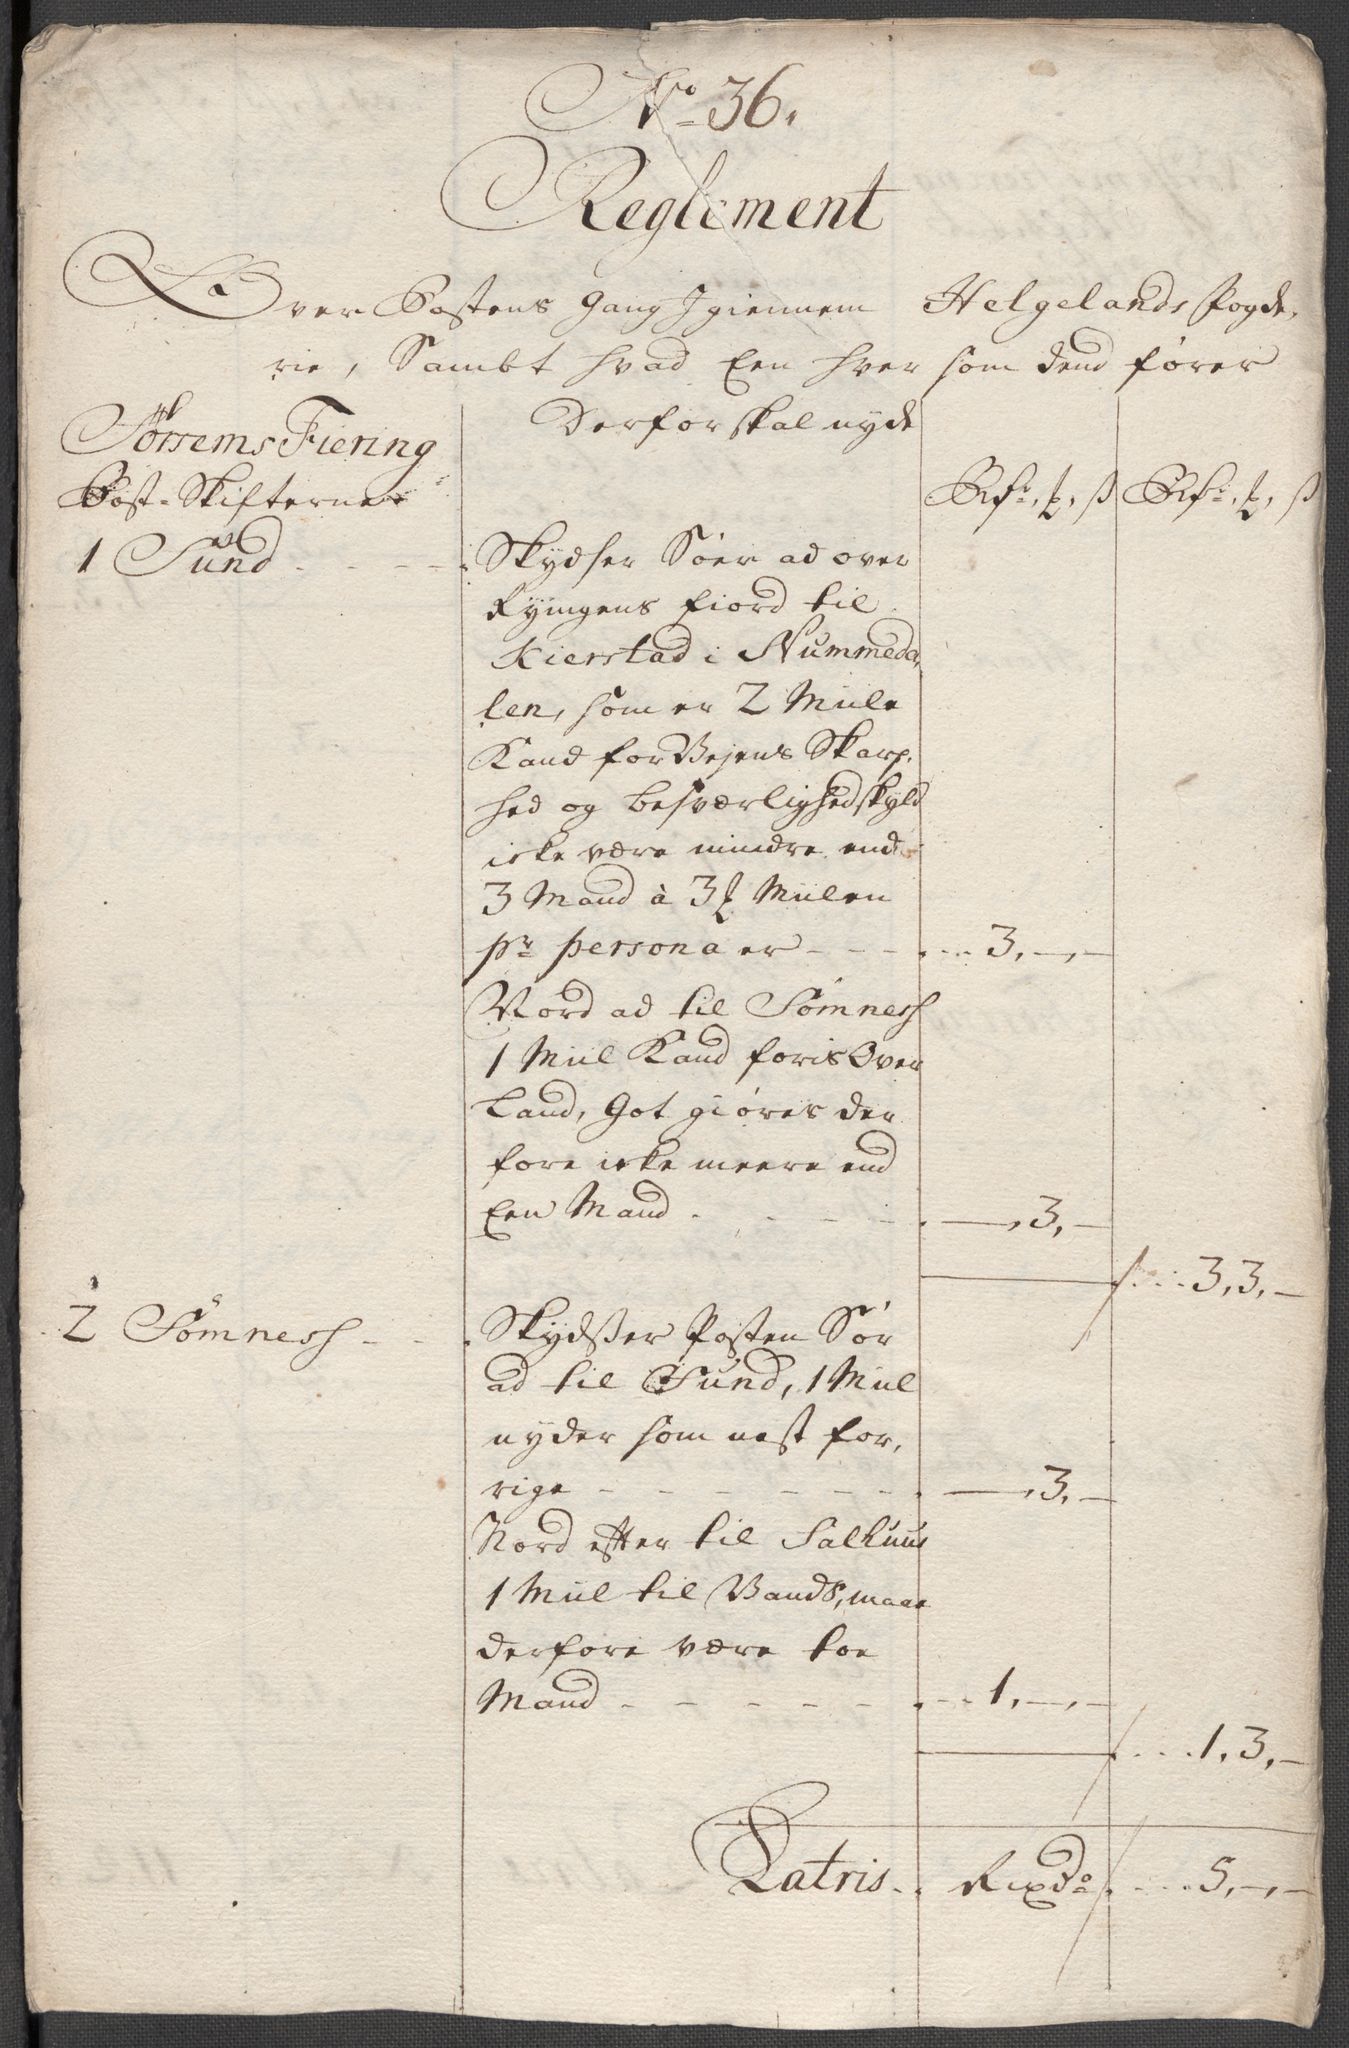 No 36.
Reglement
Over Postens Gang Igiennem Helgelands Fogde,
rie, Sambt hvad Een hver som dend fører
Derfor skal nyde
Sørrems Fiering
Post-Skifterne
Rdr, ꝑ, ß Rdr, ꝑ, ß
1 Sund
Skydser Søer ad over
Kyingens fiord til
Kierstad i Nummeda,
len, som er 2 Miile
Kand for Vejens Skarp,
hed og besværlighedskyld
icke være mindre end
3 Mand à 3 ꝑ Miilen
pr persona er - - - 3, —, —
Nord ad til Sømness
1 Miil Kand foris Over
Land, Got giøres der
fore icke meere end
Een Mand - - - —, 3, —
3, 3, —
2 Sømness
Skydsser Posten Sør
ad til Sund, 1 Miil
nyder som nest for,
rige - - - —, 3, —
Nord efter til Salhuus
1 Miil til Vands, maae
derfore være toe
Mand - - - 1, —, —
1, 3, —
Latris Rixdo 5, —, —